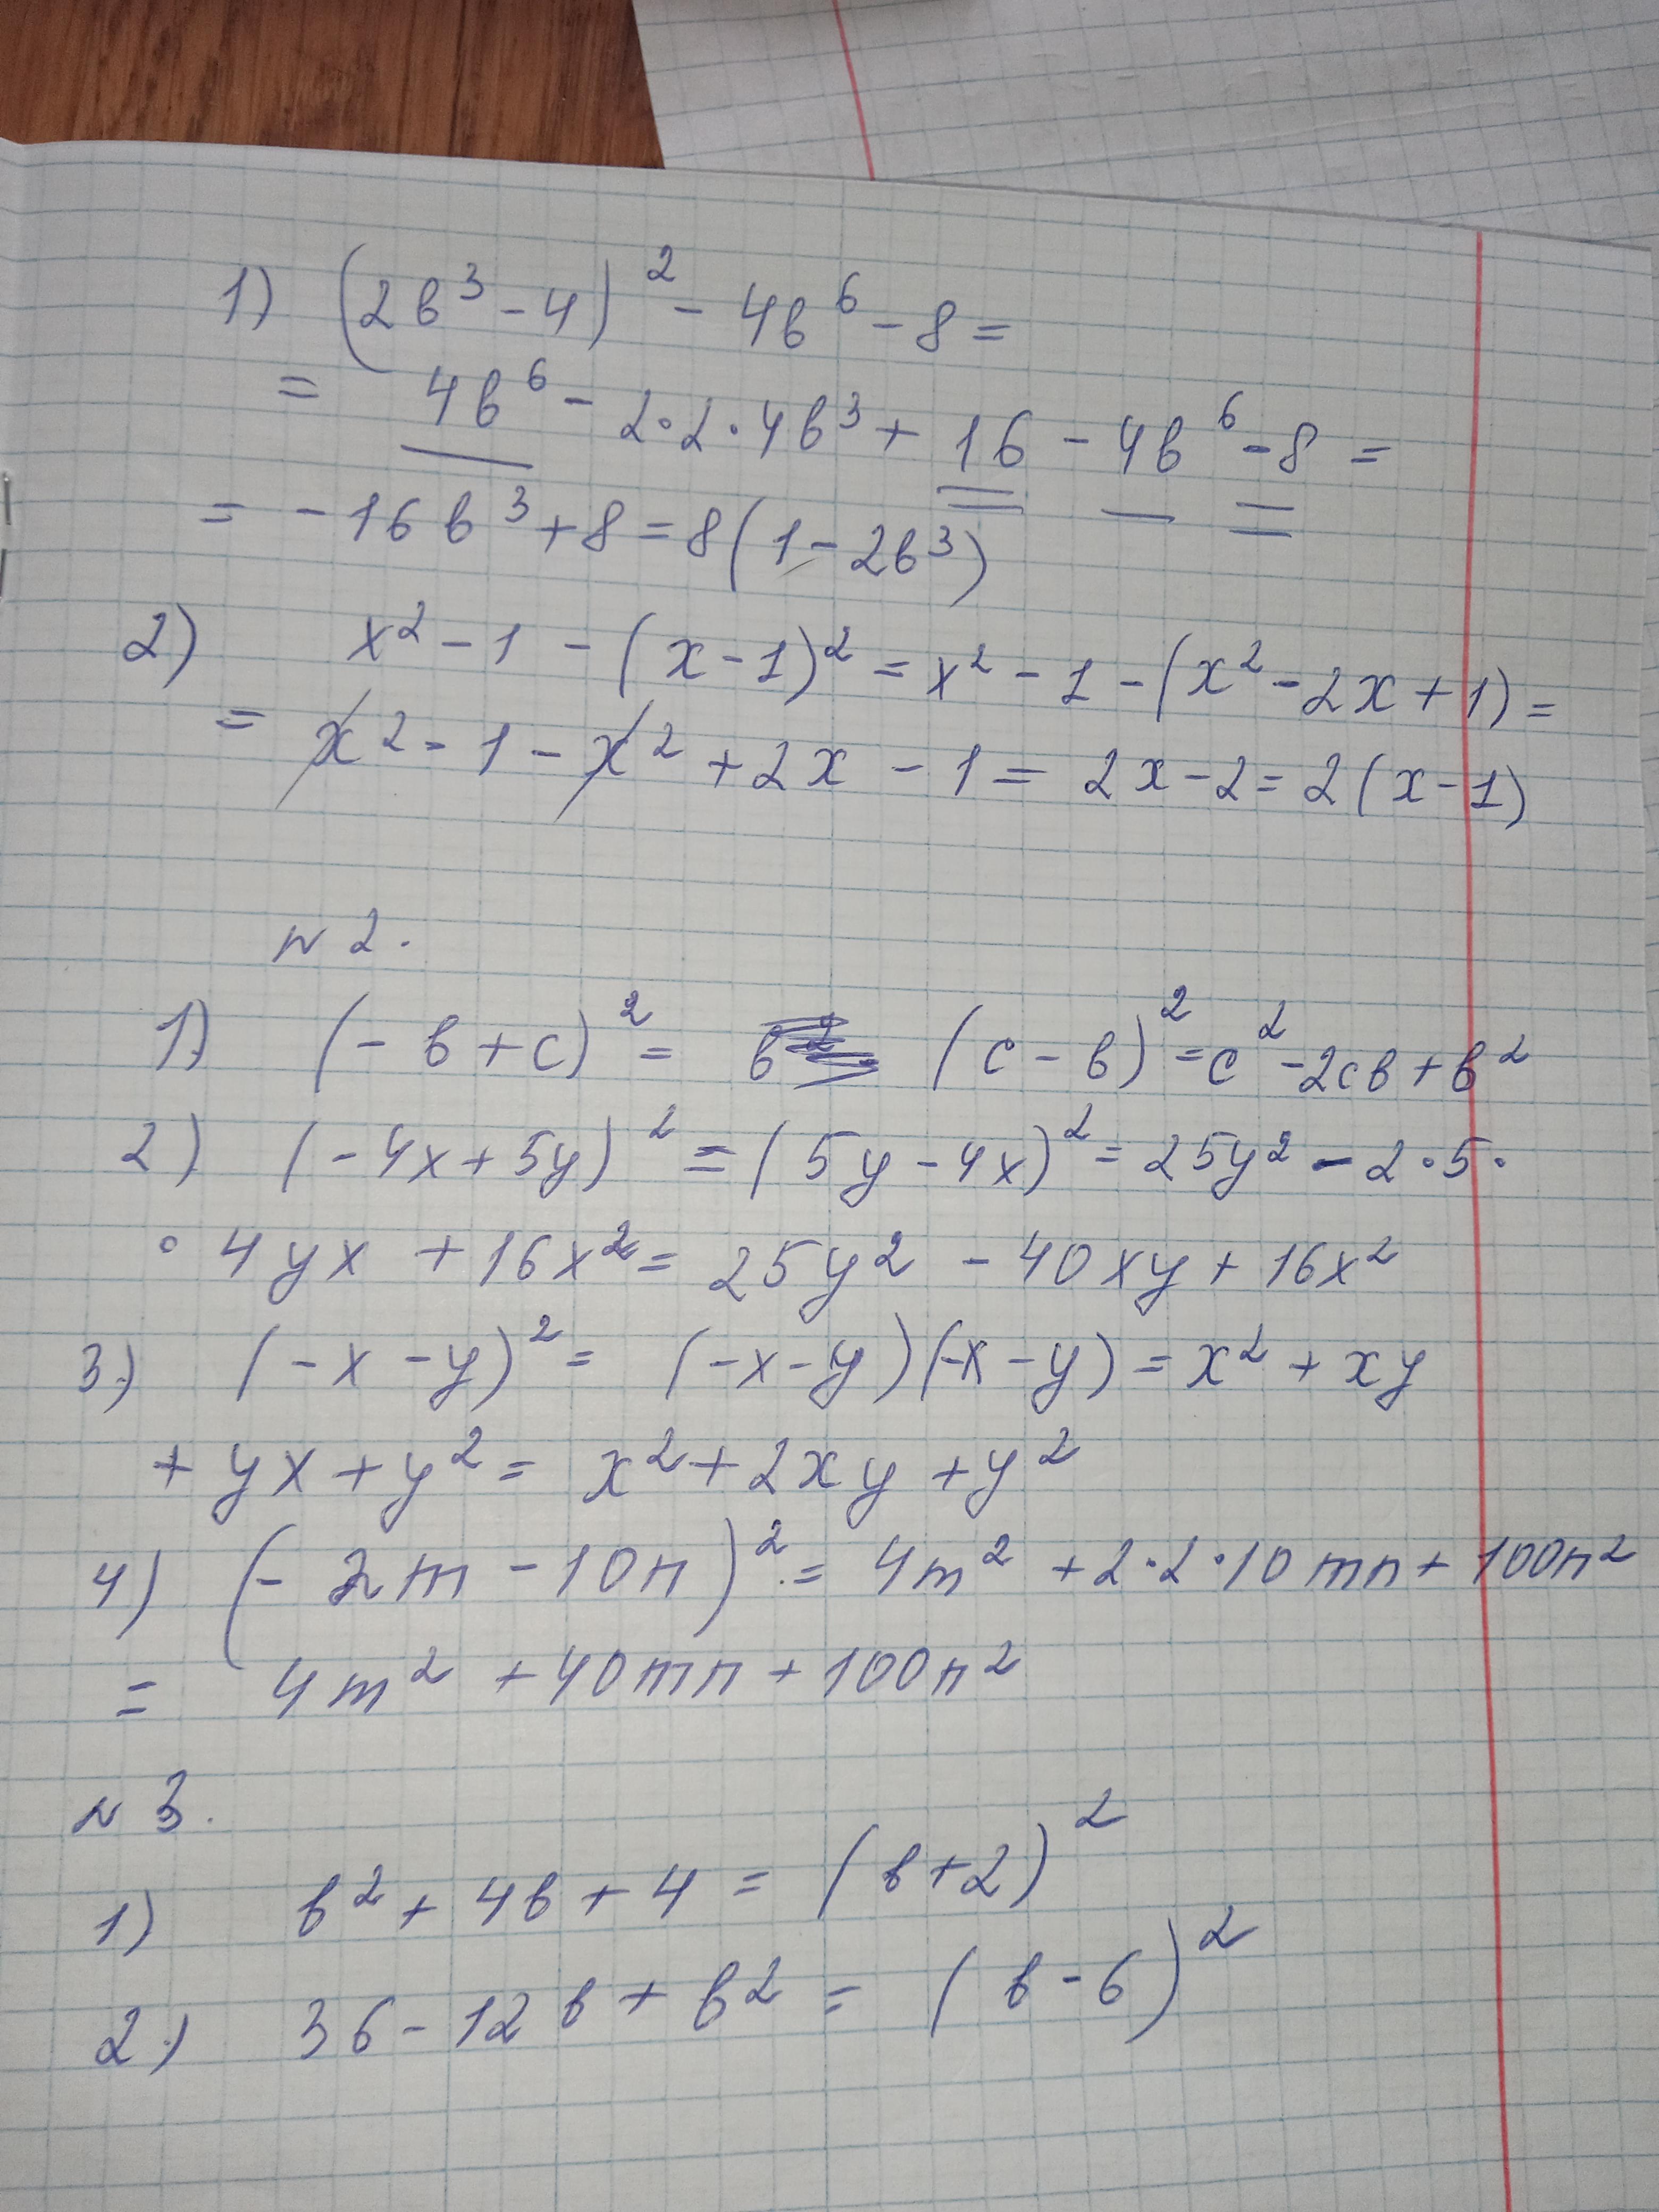 1) (2в³ - 4)² - 4в⁶ - 8 =
= 4в⁶ - 2·2·4в³ + 16 - 4в⁶ - 8 =
= - 16в³ + 8 = 8(1 - 2в³)
2) x² - 1 - (x - 1)² = x² - 1 - (x² - 2x + 1) =
= x² - 1 - x² + 2x - 1 = 2x - 2 = 2(x - 1)
N 2.
1) (- в + с)² = (с - в)² = с² - 2св + в²
2) (- 4x + 5y)² = (5y - 4x)² = 25y² - 2·5·
· 4yx + 16x² = 25y² - 40xy + 16x²
3) (- x - y)² = (-x - y)(-x - y) = x² + xy
+ yx + y² = x² + 2xy + y²
4) (- 2m - 10n)² = 4m² + 2·2·10mn + 100n²
= 4m² + 40mn + 100n²
N 3.
1) в² + 4в + 4 = (в + 2)²
2) 36 - 12в + в² = (в - 6)²